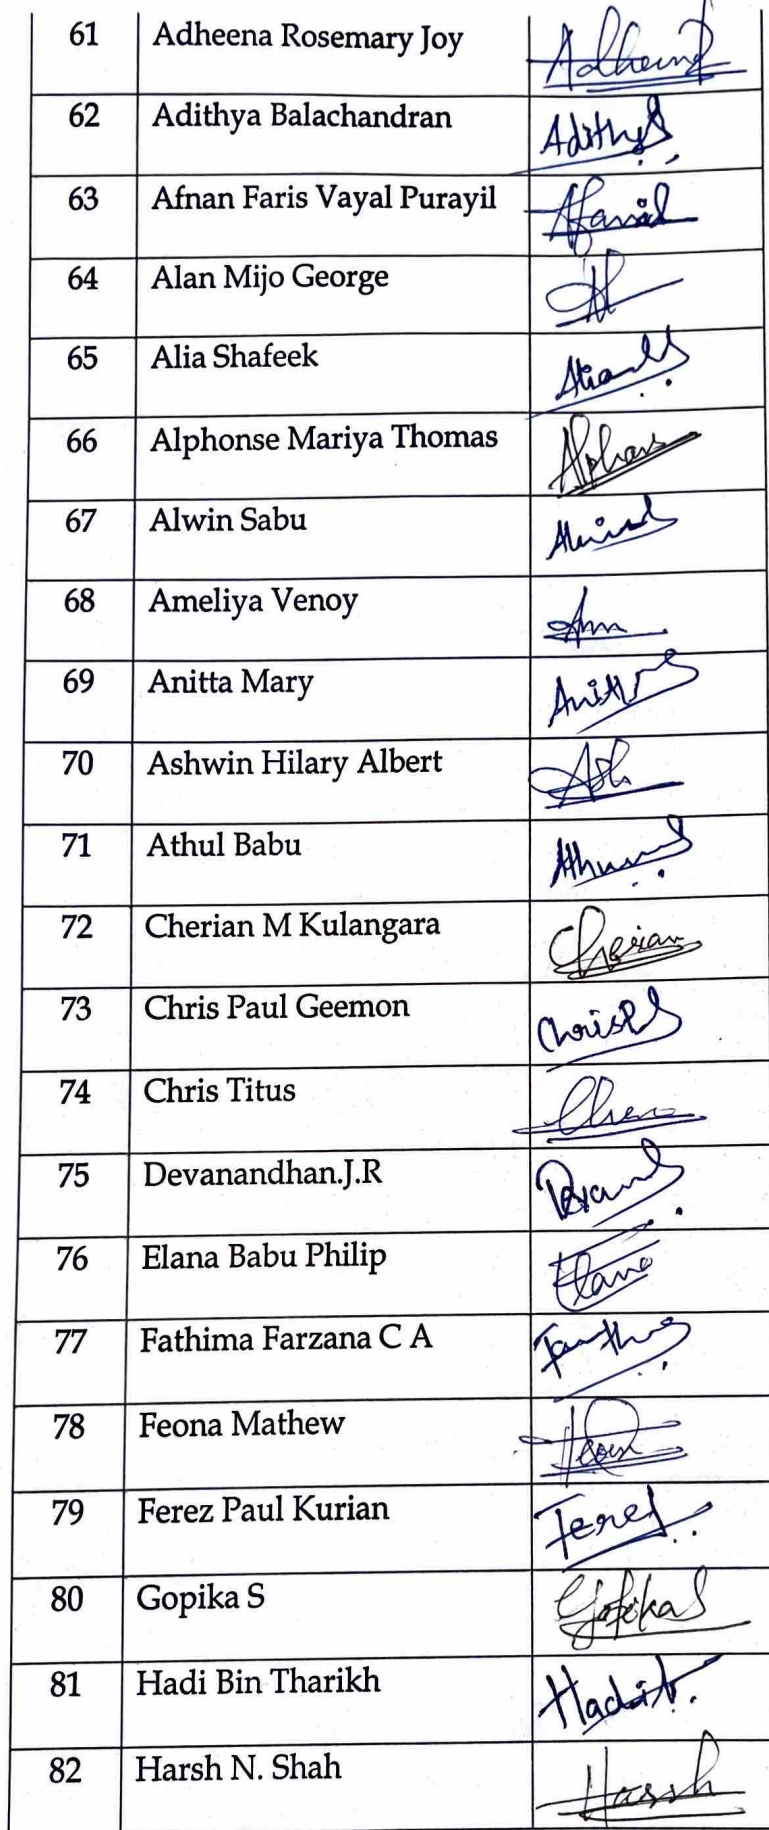 61 Adheena Rosemary Joy Adheena
62 Adithya Balachandran Adithya
63 Afnan Faris Vayal Purayil
64 Alan Mijo George
65 Alia Shafeek Alia
66 Alphonse Mariya Thomas Alphons
67 Alwin Sabu
68 Ameliya Venoy
69 Anitta Mary
70 Ashwin Hilary Albert Ash
71 Athul Babu
72 Cherian M Kulangara Cherian
73 Chris Paul Geemon Chris
74 Chris Titus
75 Devanandhan.J.R
76 Elana Babu Philip Elana
77 Fathima Farzana C A
78 Feona Mathew
79 Ferez Paul Kurian
80 Gopika S Gopika S
81 Hadi Bin Tharikh
82 Harsh N. Shah Harsh